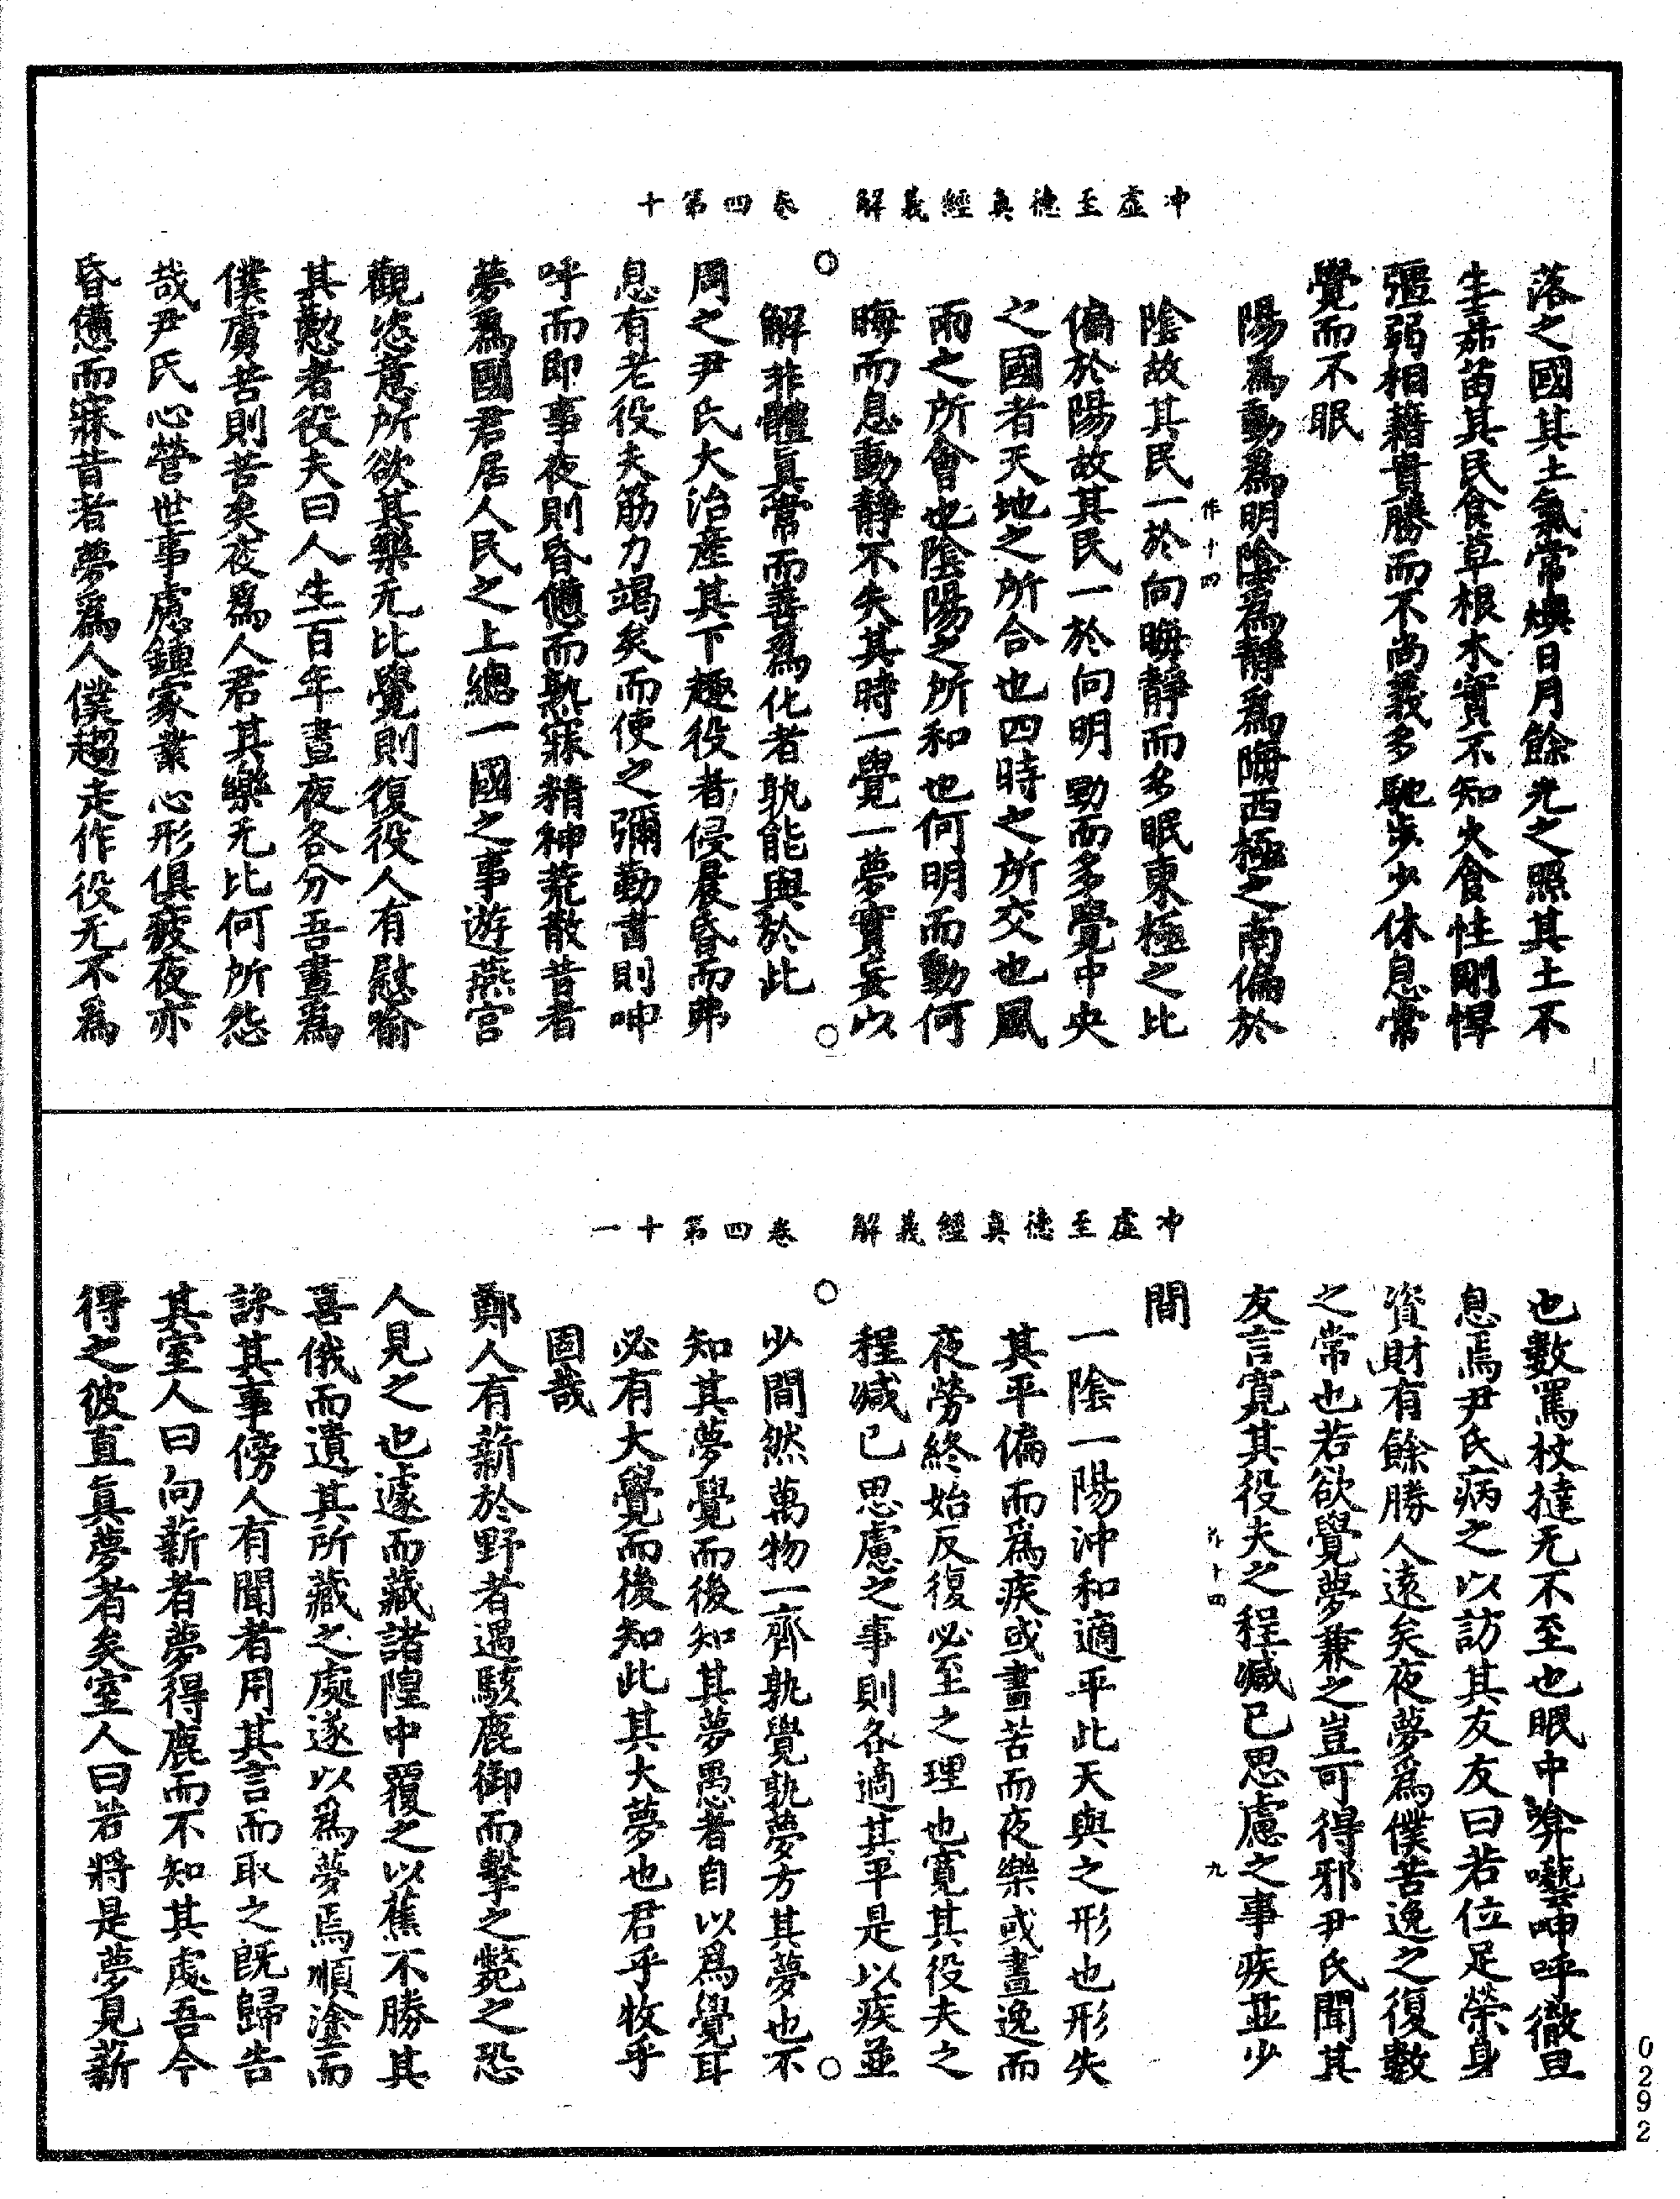 冲虛至德真經義解　卷四第十
落之國其土氣常燠日月餘光之照其土不
生嘉苗其民食草根木實不知火食性剛悍
彊弱相藉貴勝而不尚義多馳步少休息常
覺而不眠
陽爲動爲明陰爲靜爲晦西極之南偏於
陰故其民一於向晦靜而多眠東極之比
偏於陽故其民一於向明動而多覺中央
之國者天地之所合也四時之所交也風
雨之所會也陰陽之所和也何明而動何
晦而息動靜不失其時一覺一夢實妄以
解非體真常而善爲化者孰能與於此
周之尹氏大治產其下趣役者侵晨昏而弗
息有老役夫筋力竭矣而使之彌勤晝則呻
呼而即事夜則昏憊而熟寐精神荒散昔昔
夢爲國君居人民之上總一國之事遊燕宮
觀恣意所欲其樂无比覺則復役人有慰喻
其懃者役夫曰人生百年晝夜各分吾晝爲
僕虜苦則苦矣夜爲人君其樂无比何所怨
哉尹氏心營世事慮鍾家業心形俱疲夜亦
昏憊而寐昔昔夢爲人僕趨走作役无不爲
冲虛至德真經義解　卷四第十一
也數罵杖撻无不至也眠中啽囈呻呼徹旦
息焉尹氏病之以訪其友友曰若位足榮身
資財有餘勝人遠矣夜夢爲僕苦逸之復數
之常也若欲覺夢兼之豈可得邪尹氏聞其
友言寬其役夫之程減已思慮之事疾並少
間
一陰一陽沖和適平此天與之形也形失
其平偏而爲疾或晝苦而夜樂或晝逸而
夜勞終始反復必至之理也寬其役夫之
程減已思慮之事則各適其平是以疾並
少間然萬物一齊孰覺孰夢方其夢也不
知其夢覺而後知其夢愚者自以爲覺耳
必有大覺而後知此其大夢也君乎牧乎
固哉
鄭人有薪於野者遇駭鹿御而擊之斃之恐
人見之也遽而藏諸隍中覆之以蕉不勝其
喜俄而遺其所藏之處遂以爲夢焉順塗而
詠其事傍人有聞者用其言而取之既歸告
其室人曰向薪者夢得鹿而不知其處吾今
得之彼直真夢者矣室人曰若將是夢見薪
0292